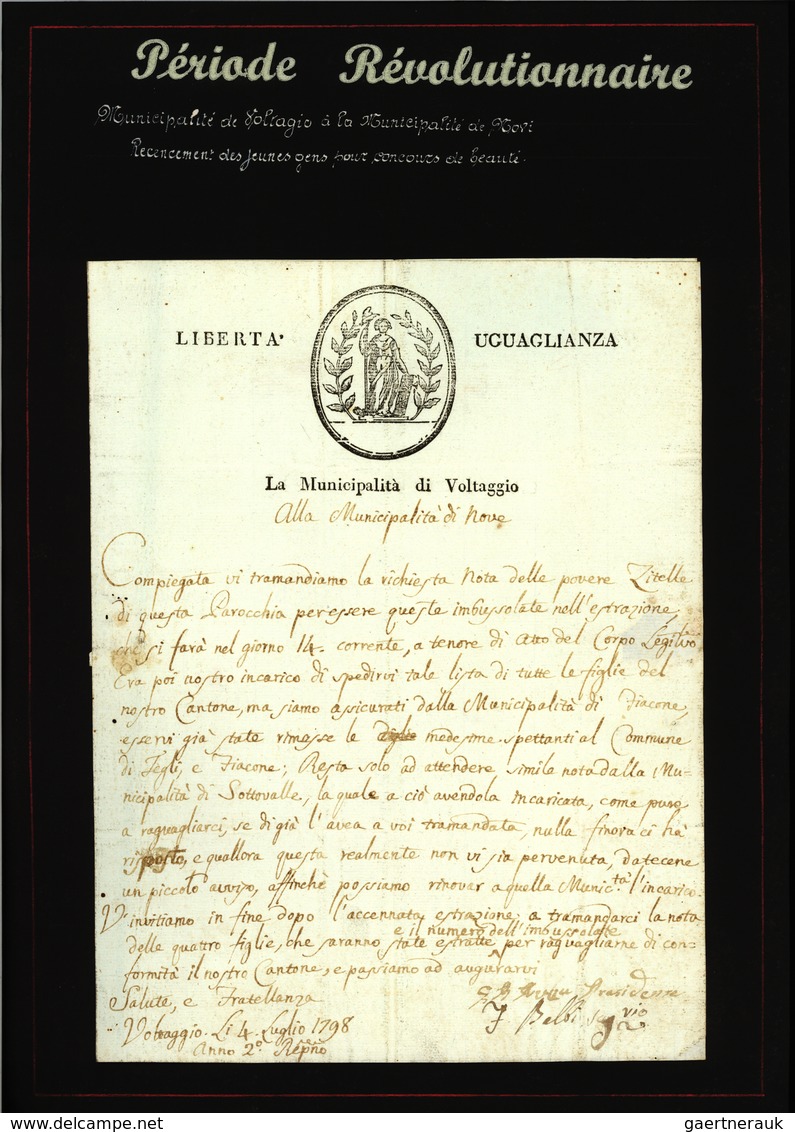 Période Révolutionnaire
Municipalité de Voltagio à la Municipalité de Novi
Recencement des jeunes gens pour concours de beauté.
LIBERTA' UGUAGLIANZA
La Municipalità di Voltaggio
Alla Municipalità di Nove
Compiegata vi tramandiamo la richiesta Nota delle povere Zitelle
di questa Parocchia per essere queste imbussolate nell'estrazione,
che si farà nel giorno 14. corrente, a tenore di Atto del Corpo Legilvo
Era poi nostro incarico di spedirvi tale lista di tutte le figlie del
nostro Cantone, ma siamo assicurati dalla Municipalità di Fiacone,
esservi già state rimesse le medesime spettanti al Commune
di Tegli, e Fiacone; Resta solo ad attendere simile nota dalla Mu-
nicipalità di Sottovalle, la quale a ciò avendola incaricata, come pure
a raguagliarci, se di già l'avea a voi tramandata, nulla finora ci hà
risposto, e quallora questa realmente non vi sia pervenuta, datecene
un piccolo avviso, affinchè possiamo rinovar a quella Munic.tà l'incarico.
V'invitiamo in fine dopo l'accennata estrazione, a tramandarci la nota
e il numero dell'imbussolate
delle quattro figlie, che saranno state estratte per raguagliarne di con=
formità il nostro Cantone, e passiamo ad augurarvi
Salute, e Fratellanza
Presidente
F Balbi
Voltaggio. Li 4. Luglio 1798
Anno 2.° Repño
delcampe.net
gaertnerauk